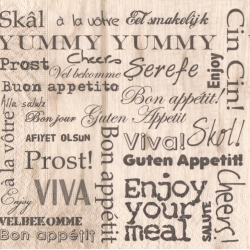 Skâl à la vôtre Eet smakelijk
YUMMY YUMMY
Prost Cheers Şerefe
Vel bekomme
Buon appetito
Alla salute Bon appétit!
Bon jour Guten Appetit
AFIYET OLSUN Viva! Skål!
Prost! Guten Appetit!
Enjoy VIVA Enjoy
your
meal
VELBEKOMME
Bon appétit
à la vôtre
Bon appétit
Enjoy
Cin Cin!
Cheers
SALUTE